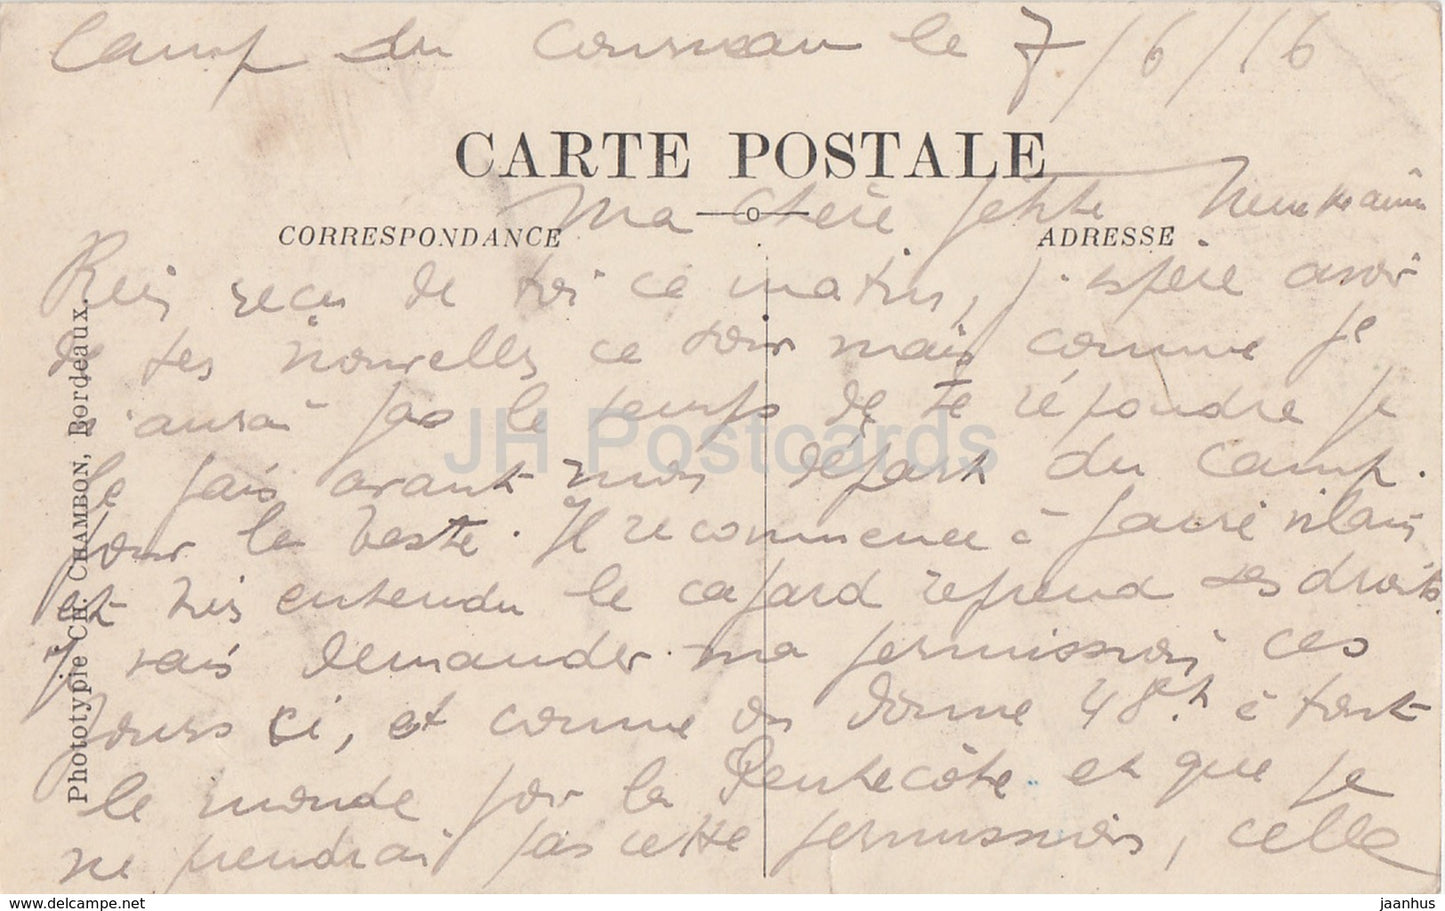 Camp du Courneau le 7/6/16
CARTE POSTALE
Ma chère petite
CORRESPONDANCE
ADRESSE
Rien reçu de toi ce matin, j'espère avoir
de tes nouvelles ce soir mais comme je
n'aurai pas le temps de te répondre je
le fais avant mon départ du Camp.
pour la veste. Il recommence à faire vilain
et bien entendu le cafard reprend ses droits.
Je vais demander ma permission ces
jours ci, et comme on donne 48 h à tout
le monde pour la Pentecôte et que je
ne prendrai pas cette permission, celle
Phototypie CH. CHAMBON, Bordeaux.
JH Postcards
www.delcampe.net
jaanhus